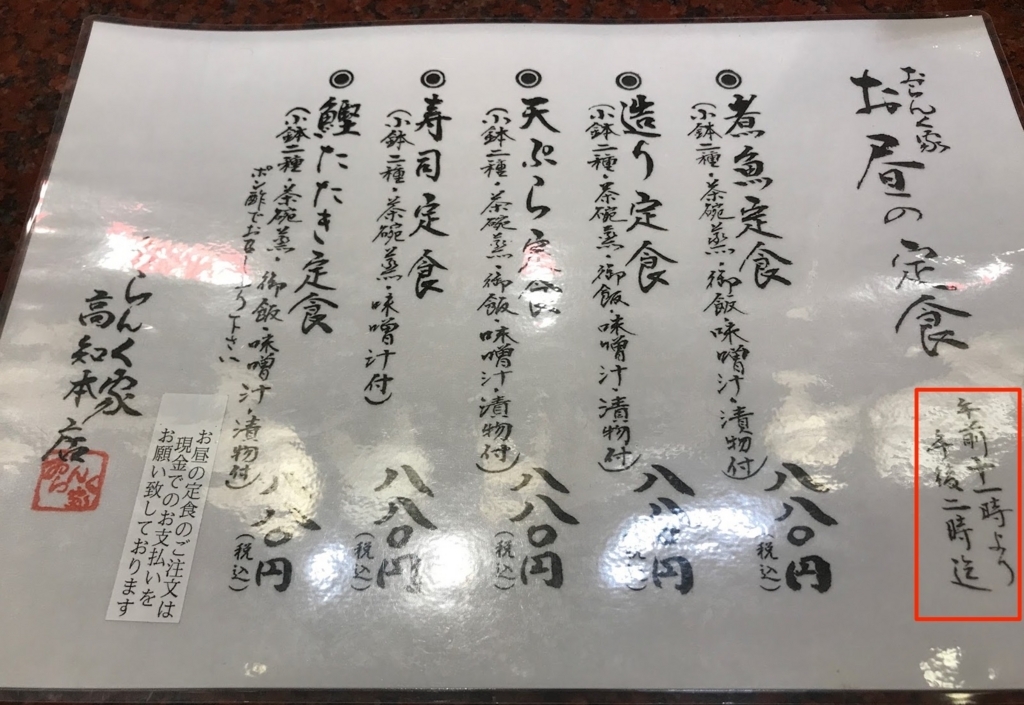 おらんく家
お昼の定食
午前十一時より
午後二時迄
◉煮魚定食
(小鉢二種・茶碗蒸・御飯味噌汁・漬物付)
八八〇円
(税込)
◉造り定食
(小鉢二種・茶碗蒸・御飯・味噌汁・漬物付)
八八〇円
(税込)
◉天ぷら定食
(小鉢二種・茶碗蒸・御飯味噌汁・漬物付)
八八〇円
(税込)
◉寿司定食
(小鉢二種・茶碗蒸・味噌汁付)
八八〇円
(税込)
◉鰹たたき定食
(小鉢二種・茶碗蒸・御飯・味噌汁・漬物付)
ポン酢でお召し下さい
八八〇円
(税込)
おらんく家
高知本店
お昼の定食のご注文は
現金でのお支払いを
お願い致しております